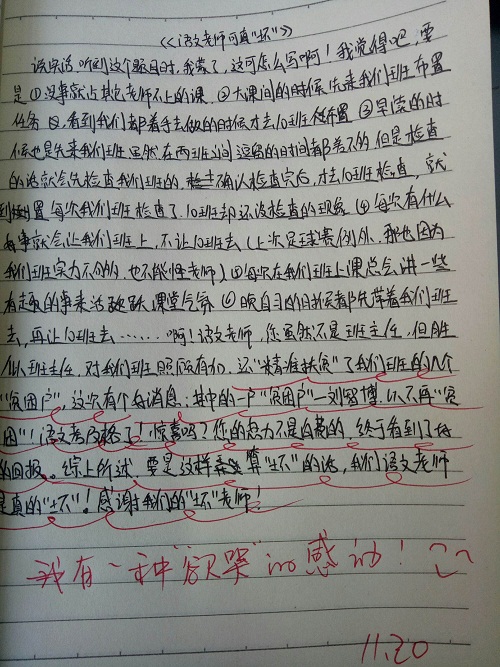 《语文老师可真"坏"》
说实话听到这个题目时,我蒙了,这可怎么写啊!我觉得吧,要
是①没事就占其它老师不上的课。②大课间的时候先来我们班布置
任务,看到我们都着手去做的时候才去10班布置③早读的时
候也是先来我们班虽然在两班之间逗留的时间都差不多但是检查
的话就会先检查我们班的,确认检查完后,才去10班检查,就
导致每次我们班检查了10班却还没检查的现象④每次有什么
事就会让我们班上,不让10班去(上次足球赛例外,那也因为
我们班实力不够,也不能怪老师)⑤每次在我们班上课总会讲一些
有趣的事来活跃课堂气氛⑥晚自习的时候都先带着我们班
去,再让10班去……啊!语文老师,您虽然不是班主任,但胜
似班主任,对我们班照顾有加,还"精准扶贫"了我们班的几个
"贫困户",这次有个好消息:其中的一户"贫困户"—刘智博,以不再"贫
困"!语文考及格了!惊喜吗?您的努力不是白费的,终于看到了好
的回报。综上所述,要是这样算"坏"的话,我们语文老师
是真的"坏"!感谢我们的"坏"老师!
我有一种"欲哭"的感动!
11.20